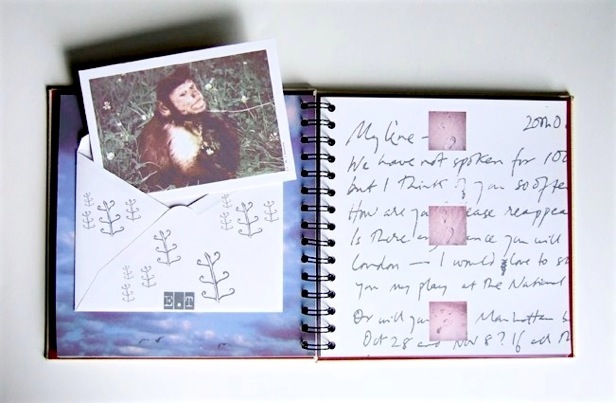 E.T
20th O
My
We have not spoken for 100
but I think of you so ofte
How are you ease reappea
Is there a ance you will
London — I would love to s
you my play at the National
Or will you Manhattan b
Oct 28 and Nov 8? If